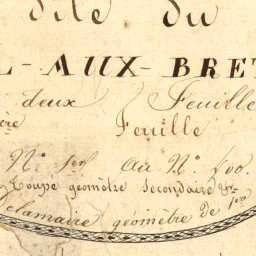 dite du
L-AUX-BRET
deux Feuille
ère Feuille
N.º 1er au N.º 400.
Toupé géomètre secondaire &
Delamaire géomètre de 1ere